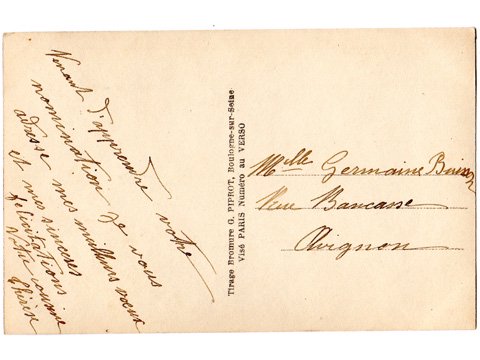 Venant d'apprendre votre
nomination je vous
adresse mes meilleurs voeux
et mes sincères
félicitations
votre amie
Thérèse
Tirage Bromure G. PIPROT, Boulogne-sur-Seine
Visé PARIS Numéro au VERSO
Mlle Germaine
Rue Bancasse
Avignon